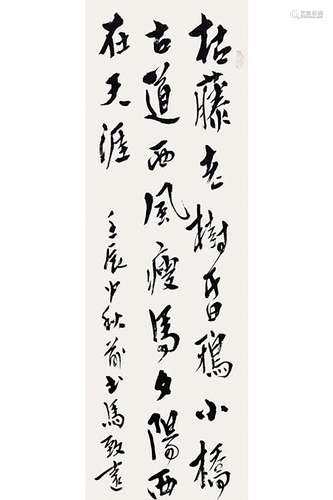 枯藤老樹昏鴉小橋
古道西風瘦馬夕陽西
在天涯
壬辰中秋前書馬致遠